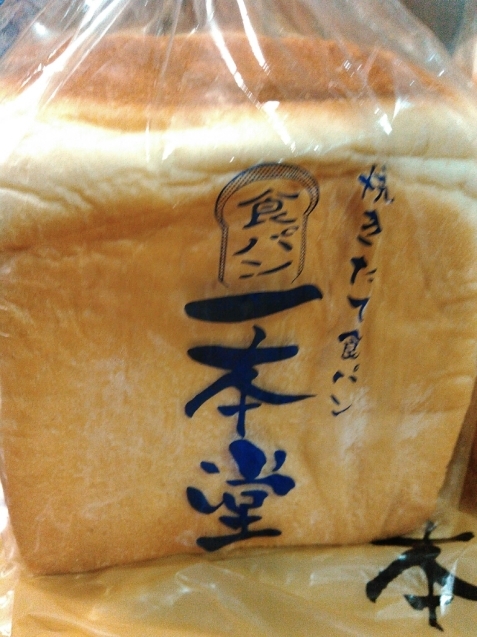 焼きたて食パン
食パン
一本堂
本